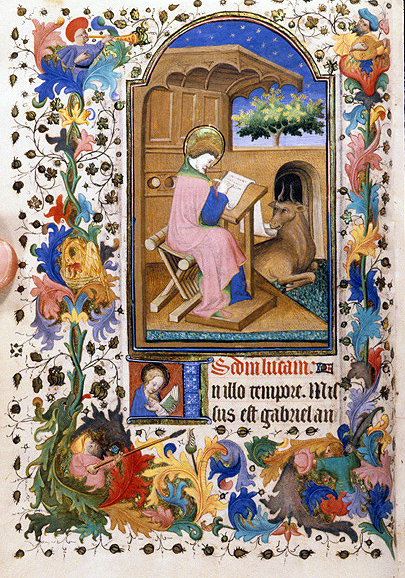 Scdm lucam.
In illo tempore. Mis
sus est gabriel an